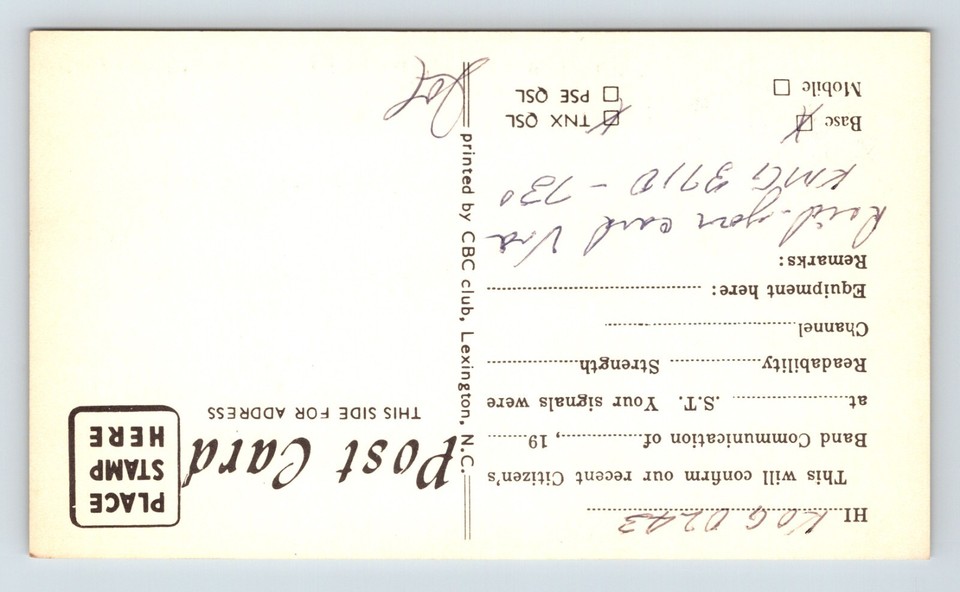 HI KOG 0243
This will confirm our recent Citizen's
Band Communication of............, 19........
at........................ .S.T. Your signals were
Readability............... Strength...............
Channel..............................
Equipment here: ..............................
Remarks:
Recd your card Via
KMG 3710 - 73s
Base TNX QSL
Mobile PSE QSL
printed by CBC club, Lexington, N.C.
Post Card
THIS SIDE FOR ADDRESS
PLACE
STAMP
HERE